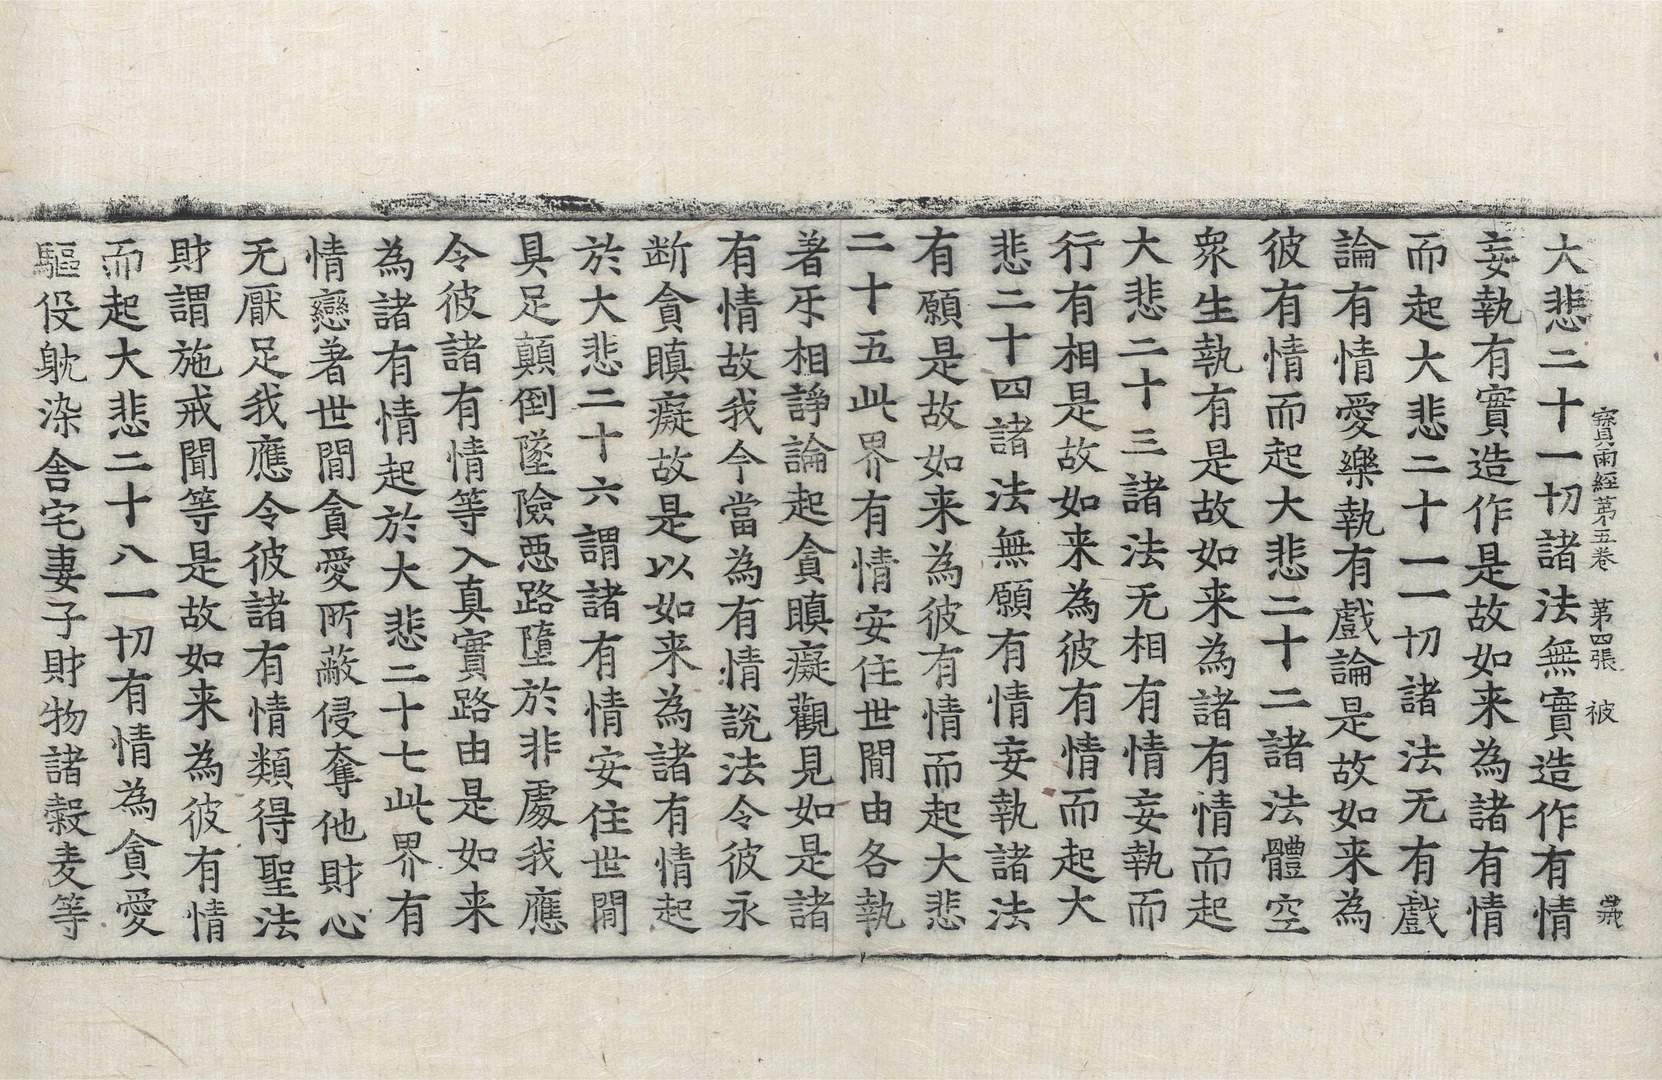 寳雨經第五卷　第四張　被
大悲二十一切諸法無實造作有情
妄執有實造作是故如来為諸有情
而起大悲二十一一切諸法无有戲
論有情愛樂執有戲論是故如来為
彼有情而起大悲二十二諸法體空
衆生執有是故如来為諸有情而起
大悲二十三諸法无相有情妄執而
行有相是故如来為彼有情而起大
悲二十四諸法無願有情妄執諸法
有願是故如来為彼有情而起大悲
二十五此界有情安住世間由各執
著牙相諍論起貪瞋癡觀見如是諸
有情故我今當為有情說法令彼永
断貪瞋癡故是以如来為諸有情起
於大悲二十六謂諸有情安住世間
具足顛倒墜險惡路墮於非處我應
令彼諸有情等入真實路由是如来
為諸有情起於大悲二十七此界有
情戀著世間貪愛所蔽侵奪他財心
无厭足我應令彼諸有情類得聖法
財謂施戒聞等是故如来為彼有情
而起大悲二十八一切有情為貪愛
驅役躭染舎宅妻子財物諸糓麦等